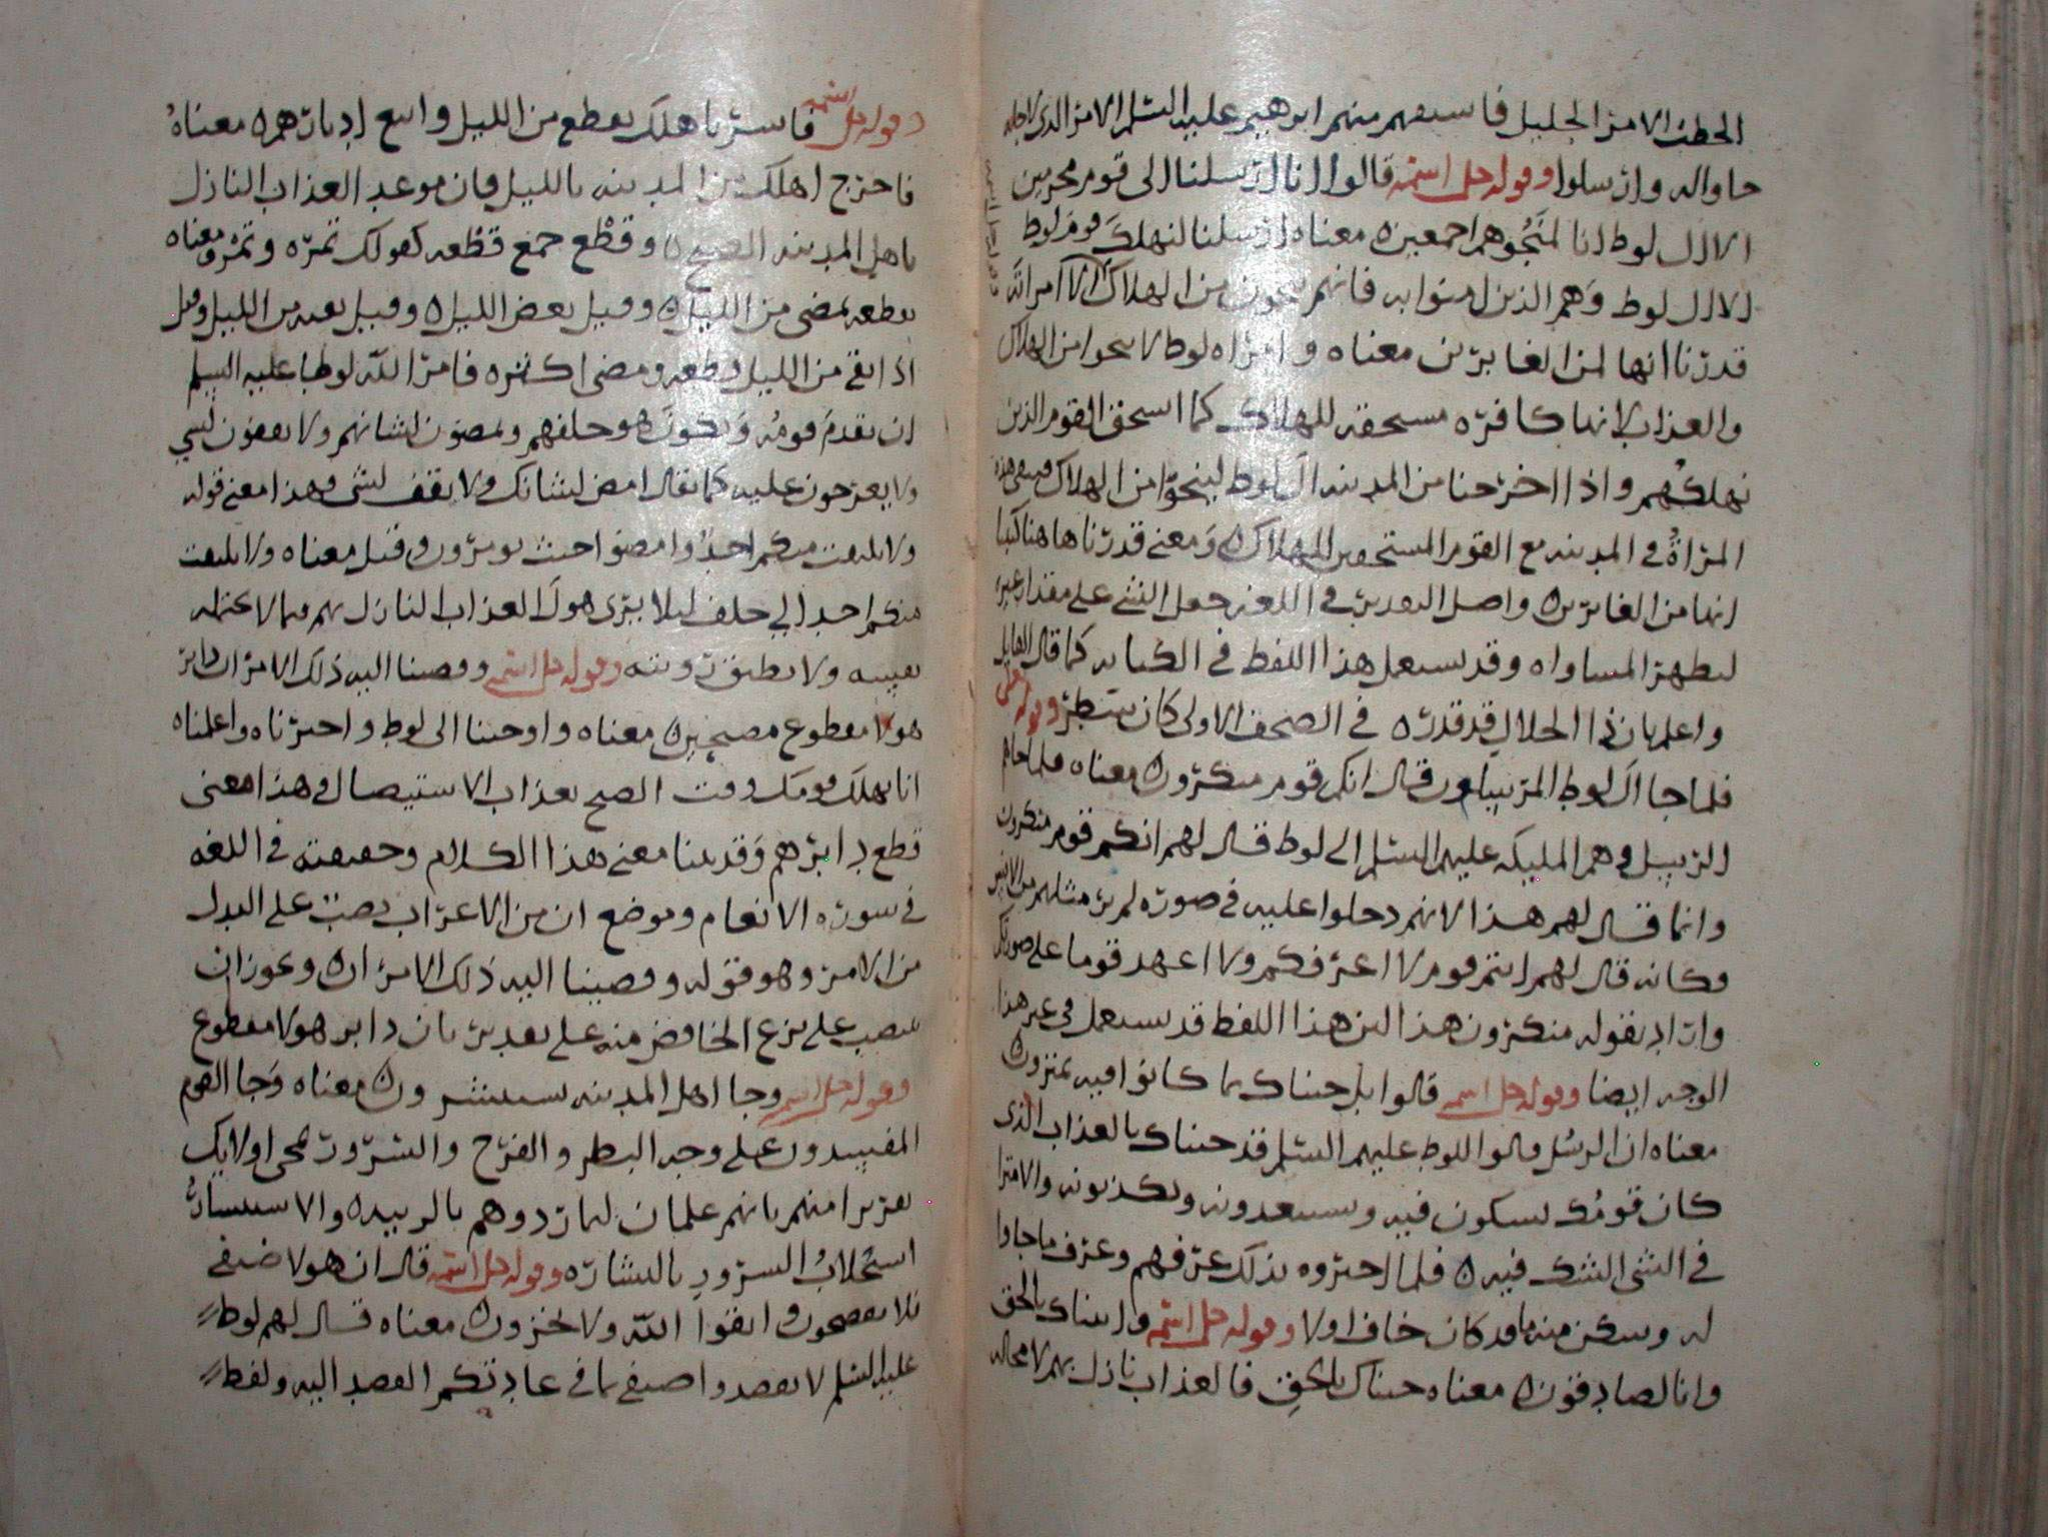 الخطب الامر الجليل فاستفهم منهم ابرهيم عليه السلم الامر الذي لاجله
جاوا له وارسلوا وقوله جل اسمه قالوا انا ارسلنا الى قوم مجرمين
الا ال لوط انا لمنجوهم اجمعين معناه ارسلنا لنهلك قوم لوط
الا ال لوط وهم الذين امنوا به فانهم ينجون من الهلاك الا امراته
قدرنا انها لمن الغابرين معناه وامراه لوط لا ينجوا من الهلاك
والعذاب لانها كافره مستحقه للهلاك كما استحق القوم الذين
نهلكهم واذا اخرجنا من المدينه ال لوط لينجوا من الهلاك فبقى هذه
المراة في المدينه مع القوم المستحقين للهلاك ومعنى قدرنا هاهنا كتبنا
انها من الغابرين واصل التقدير في اللغه جعل الشي على مقدار غيره
ليظهر المساواه وقد يستعمل هذا اللفظ في الكتابه كما قال القايل
واعلم بان ذا الجلال قد قدره في الصحف الاولى كان سطر وقوله تعالى
فلما جا ال لوط المرسلون قال انكم قوم منكرون معناه فلما جاهم
الرسل وهم المليكه عليهم السلم الى لوط قال لهم انكم قوم منكرون
وانما قال لهم هذا لانهم دخلوا عليه في صوره لم ير مثلهم من الانس
فكانه قال لهم انتم قوم لا اعرفكم ولا اعهد قوما على صورتكم
واراد بقوله منكرون هذا لان هذا اللفظ قد يستعمل في غير هذا
الوجه ايضا وقوله جل اسمه قالوا بل جيناك بما كانوا فيه يمترون
معناه ان الرسل قالوا للوط عليهم السلم قد جيناك بالعذاب الذي
كان قومك يشكون فيه ويستبعدونه ويكذبونه والامترا
في الشي الشك فيه فلما اخبروه بذلك عرفهم وعرف ما جاوا
له وسكن منه ما قد كان خاف اولا وقوله جل اسمه واتيناك بالحق
وانا لصادقون معناه جيناك بالحق فالعذاب نازل بهم لا محاله
وقوله جل اسمه فاسر باهلك بقطع من الليل واتبع ادبارهم معناه
فاخرج اهلك من المدينه بالليل فان موعد العذاب النازل
باهل المدينه الصبح وقطع جمع قطعه كقولك تمره وتمر ومعناه
بقطعه تمضى من الليل وقيل بعض الليل وقيل بقيه من الليل وقيل
اذا بقى من الليل قطعه ومضى اكثره فامر الله لوطا عليه السلم
ان يقدم قومه ويكون هو خلفهم ويمضون لشانهم ولا يقفون لشي
ولا يعرجون عليه كما يقال امض لشانك ولا يقف لشي وهذا معنى قوله
ولا يلتفت منكم احد وامضوا حيث تومرون وقيل معناه ولا يلتفت
منكم احد الى خلف ليلا يرى هول العذاب النازل بهم فما لا تحتمله
نفسه ولا يطيق رويته وقوله جل اسمه وقضينا اليه ذلك الامر ان دابر
هولا مقطوع مصبحين معناه واوحينا الى لوط واخبرناه واعلمناه
انا نهلك قومك وقت الصبح بعذاب الاستيصال وهذا معنى
قطع دابرهم وقد بينا معنى هذا الكلام وحقيقته في اللغه
في سوره الانعام وموضع ان من الاعراب نصب على البدل
من الامر وهو قوله وقضينا اليه ذلك الامر ان ويجوز ان
ينصب على نزع الخافض منه على تقدير بان دابر هولا مقطوع
وقوله جل اسمه وجا اهل المدينه يستبشرون معناه وجا القوم
المفسدون على وجه البطر والفرح والسرور بمجى اوليك
تقديرا منهم بانهم غلمان ليراودوهم بالريبه والاستبشار
استجلاب السرور بالبشاره وقوله جل اسمه قال ان هولا ضيفى
فلا تفضحون واتقوا الله ولا تخزون معناه قال لهم لوط
عليه السلم لا تقصدوا ضيفى بما في عادتكم القصد اليه ولفظ